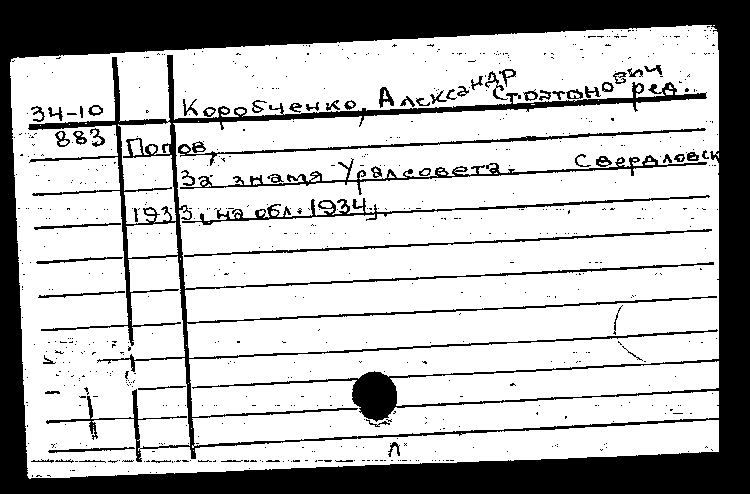 34-10 Коробченко, Александр Стратонович ред.
883 Попов,
За знамя Уралсовета. Свердловск
1933, на обл. 1934.
л